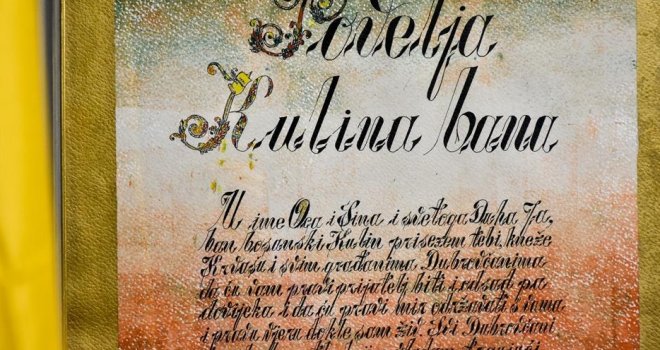 Povelja
Kulina bana
U ime Oca i Sina i svetoga Duha Ja,
ban bosanski Kulin prisežem tebi, kneže
Krvašu i svim građanima Dubrovčanima
da ću vam pravi prijatelj biti i odsad pa
dovijeka i da ću pravi mir održavati s vama
i pravu vjeru dokle sam živ. Svi Dubrovčani